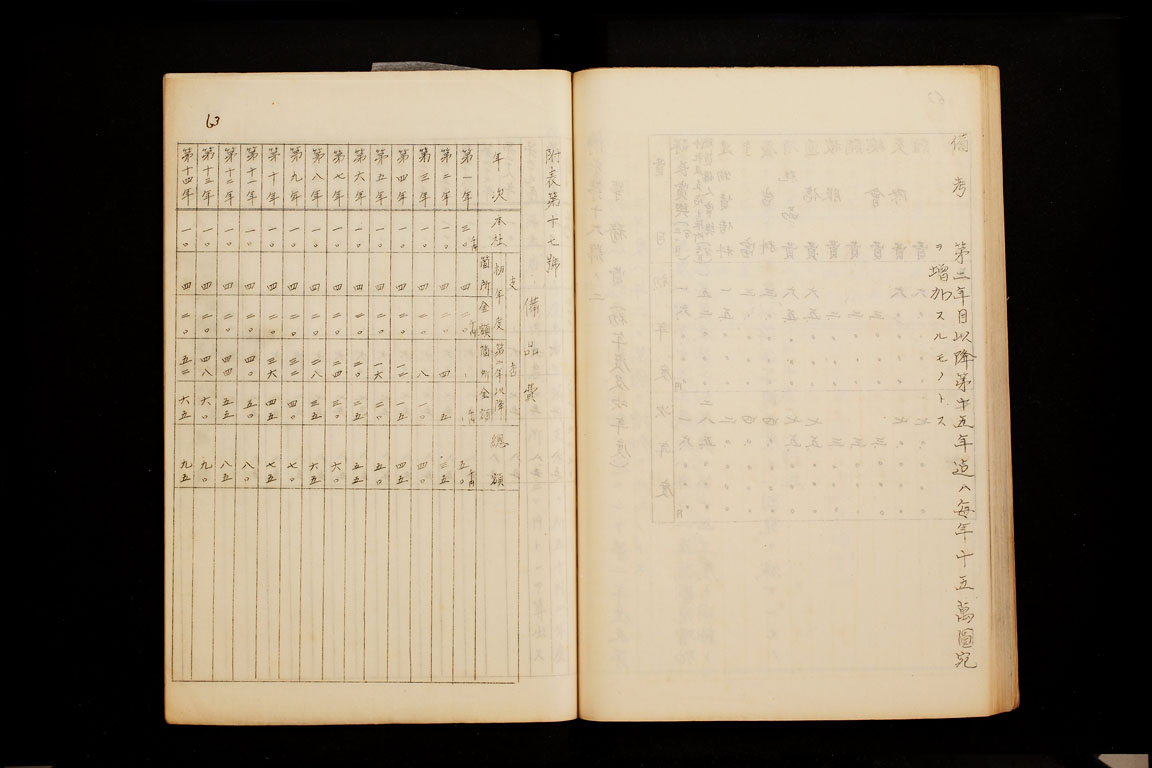 備考 第二年目以降第十五年迄ハ毎年十五萬圓宛
ヲ増加スルモノトス
63
附表第十七號
備品費
年次 本社 支店 初年度 箇所 金額 第二年以降 箇所 金額 總額
第一年 三〇 四 二〇 五〇
第二年 一〇 四 二〇 四 五 三五
第三年 一〇 四 二〇 八 一〇 四〇
第四年 一〇 四 二〇 一二 一五 四五
第五年 一〇 四 二〇 一六 二〇 五〇
第六年 一〇 四 二〇 二〇 二五 五五
第七年 一〇 四 二〇 二四 三〇 六〇
第八年 一〇 四 二〇 二八 三五 六五
第九年 一〇 四 二〇 三二 四〇 七〇
第十年 一〇 四 二〇 三六 四五 七五
第十一年 一〇 四 二〇 四〇 五〇 八〇
第十二年 一〇 四 二〇 四四 五五 八五
第十三年 一〇 四 二〇 四八 六〇 九〇
第十四年 一〇 四 二〇 五二 六五 九五